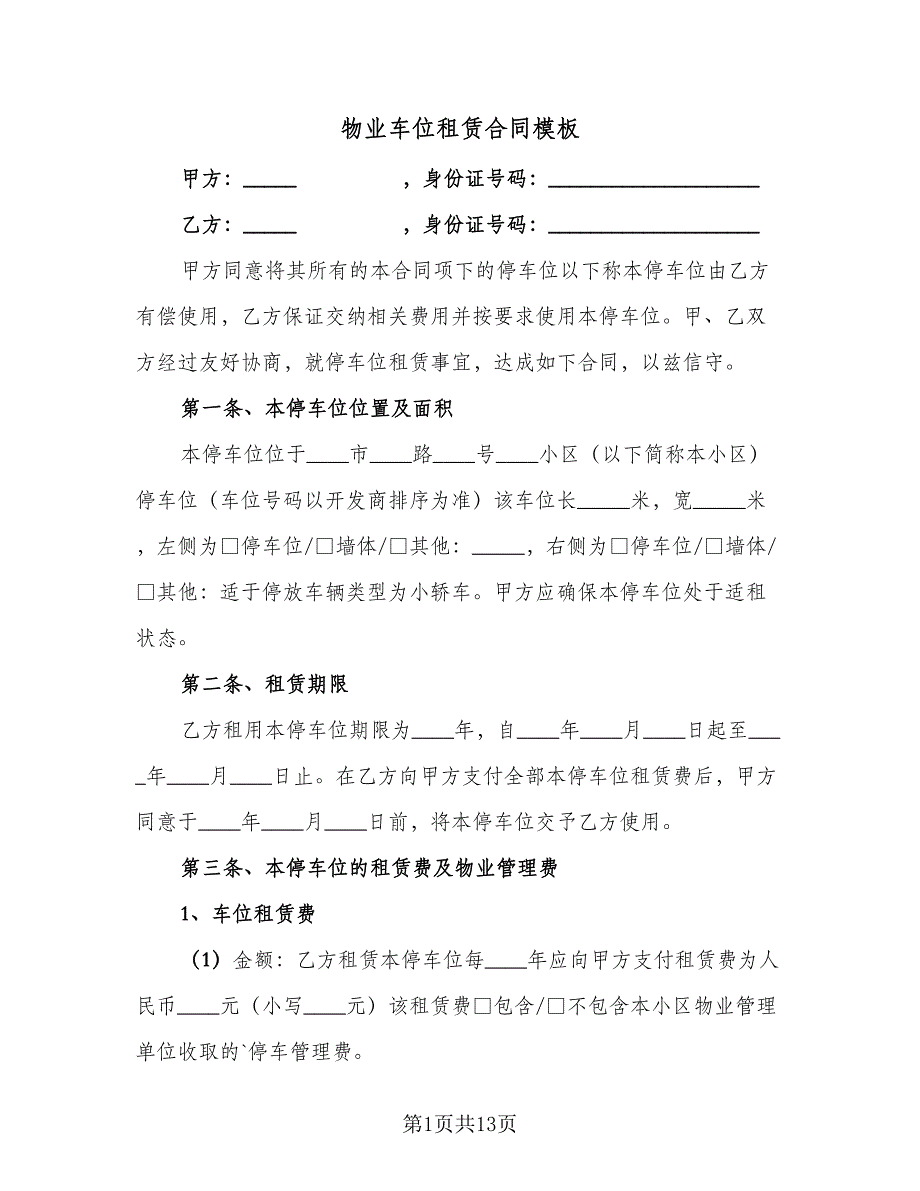 物业车位租赁合同模板
甲方：_____ ，身份证号码：____________________
乙方：_____ ，身份证号码：____________________
甲方同意将其所有的本合同项下的停车位以下称本停车位由乙方
有偿使用，乙方保证交纳相关费用并按要求使用本停车位。甲、乙双
方经过友好协商，就停车位租赁事宜，达成如下合同，以兹信守。
第一条、本停车位位置及面积
本停车位位于____市____路____号____小区（以下简称本小区）
停车位（车位号码以开发商排序为准）该车位长_____米，宽_____米
，左侧为□停车位/□墙体/□其他：_____，右侧为□停车位/□墙体/
□其他：适于停放车辆类型为小轿车。甲方应确保本停车位处于适租
状态。
第二条、租赁期限
乙方租用本停车位期限为____年，自____年____月____日起至___
_年____月____日止。在乙方向甲方支付全部本停车位租赁费后，甲方
同意于____年____月____日前，将本停车位交予乙方使用。
第三条、本停车位的租赁费及物业管理费
1、车位租赁费
（1）金额：乙方租赁本停车位每____年应向甲方支付租赁费为人
民币____元（小写____元）该租赁费□包含/□不包含本小区物业管理
单位收取的`停车管理费。
第1页共13页